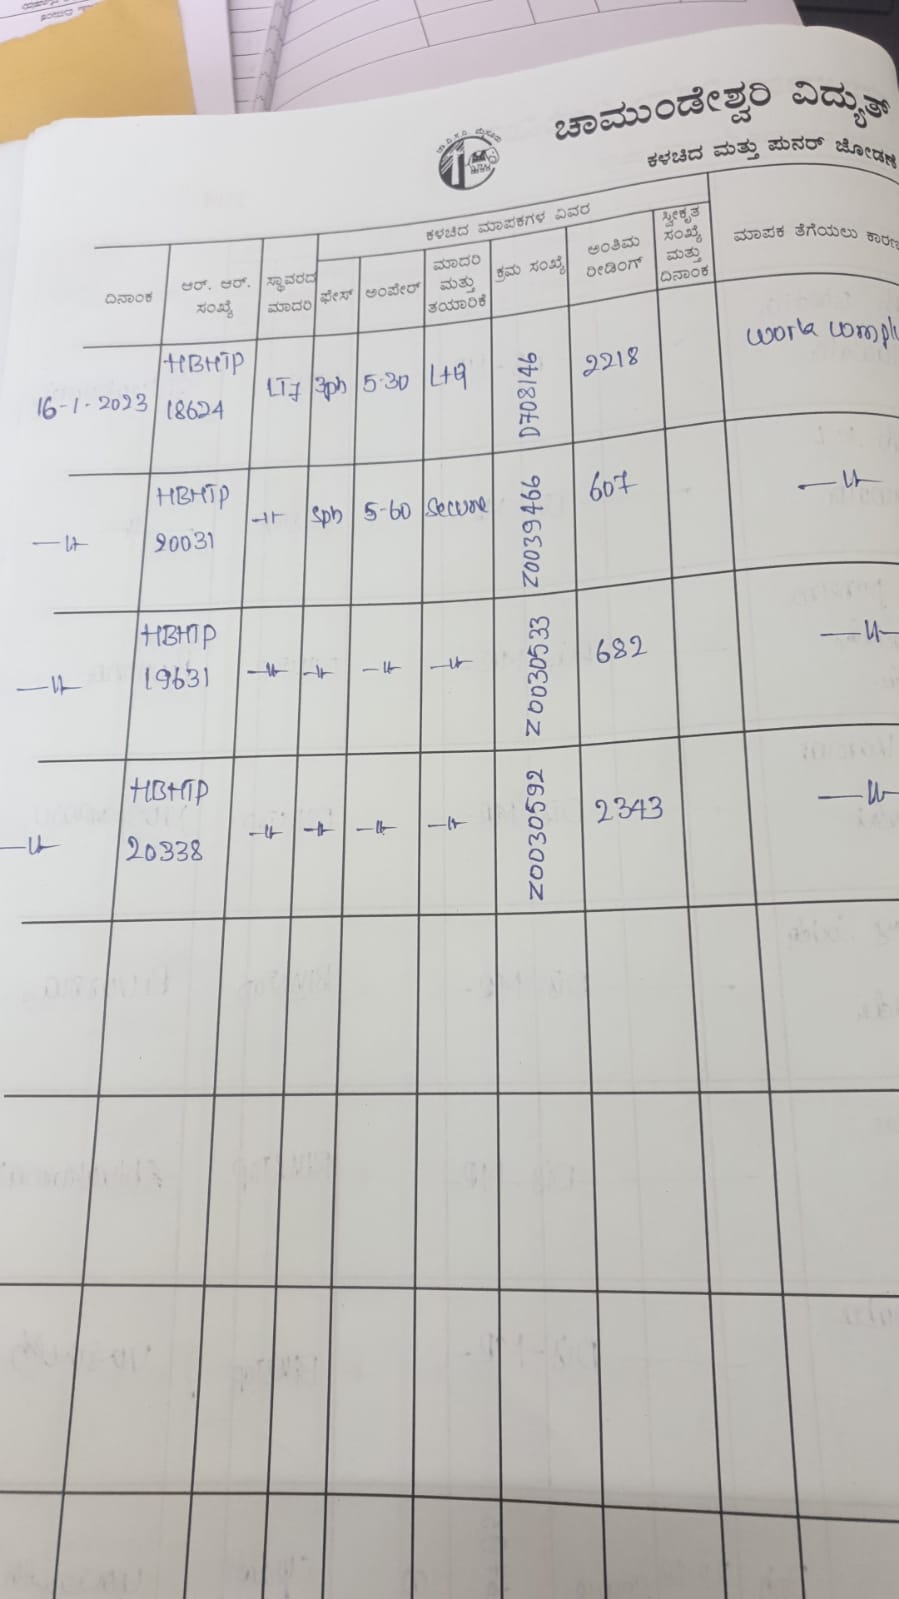 ಚಾಮುಂಡೇಶ್ವರಿ ವಿದ್ಯುತ್
ಕಳಚಿದ ಮತ್ತು ಪುನರ್ ಜೋಡಣೆ
ಕಳಚಿದ ಮಾಪಕಗಳ ವಿವರ
ದಿನಾಂಕ
ಆರ್. ಆರ್.
ಸಂಖ್ಯೆ
ಸ್ಥಾವರದ
ಮಾದರಿ
ಫೇಸ್
ಅಂಪೇರ್
ಮಾದರಿ
ಮತ್ತು
ತಯಾರಿಕೆ
ಕ್ರಮ ಸಂಖ್ಯೆ
ಅಂತಿಮ
ರೀಡಿಂಗ್
ಸ್ವೀಕೃತ
ಸಂಖ್ಯೆ
ಮತ್ತು
ದಿನಾಂಕ
ಮಾಪಕ ತೆಗೆಯಲು ಕಾರಣ
16-1-2023 HBHTP LT7 3ph 5-30 L+G D708146 2218 work
18624
HBHTP 3ph 5-60 secure Z0039466 607
20031
HBHTP Z0030533 682
19631
HBHTP Z0030592 2343
20338